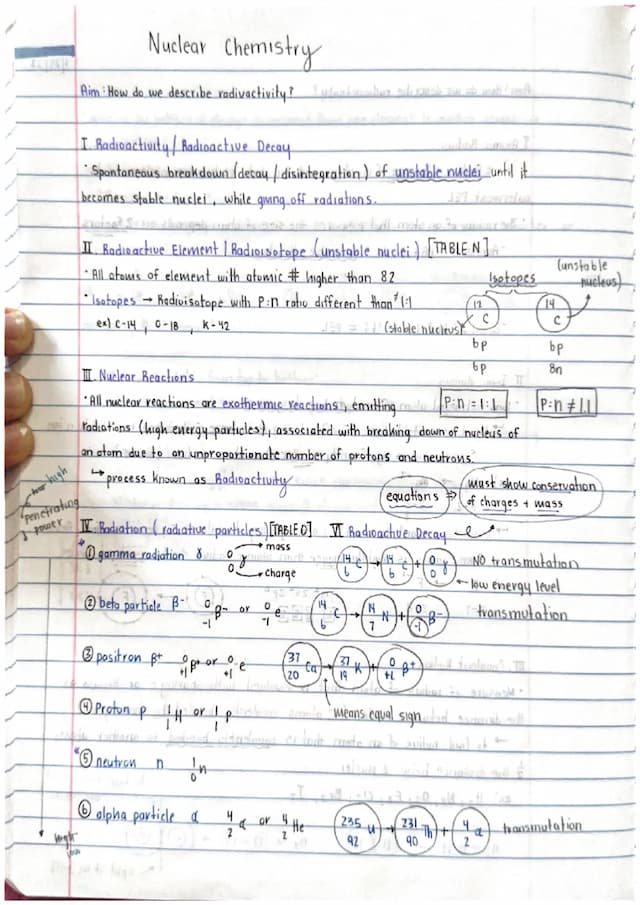 Nuclear Chemistry
Aim: How do we describe radivactivity?
I. Radioactivity / Radioactive Decay
· Spontaneous breakdown (decay / disintegration) of unstable nuclei until it
becomes stable nuclei, while giving off radiations.
II. Radioactive Element | Radioisotope (unstable nuclei) [TABLE N]
· All atoms of element with atomic # higher than 82
· Isotopes → Radioisotope with P:n ratio different than 1:1
ex) C-14, O-18, K-42
Isotopes
(unstable
nucleus)
12 C
14 C
(stable nucleus)
6p
6p
6p
8n
P:n = 1:1
P:n ≠ 1:1
III. Nuclear Reactions
· All nuclear reactions are exothermic reactions, emitting
radiations (high energy particles), associated with breaking down of nucleus of
an atom due to an unproportionate number of protons and neutrons.
↳ process known as Radioactivity
equations ⇒ must show conservation
of charges + mass
high
penetrating
power
IV. Radiation (radiative particles) [TABLE O]
VI Radioactive Decay
① gamma radiation γ 0 0 γ → mass → charge
14 6 C → 14 6 C + 0 0 γ NO transmutation
← low energy level
② beta particle β- 0 -1 β- or 0 -1 e 14 6 C → 14 7 N + 0 -1 β- transmutation
③ positron β+ 0 +1 β+ or 0 +1 e 37 20 Ca → 37 19 K + 0 +1 β+
means equal sign
④ Proton p 1 1 H or 1 1 P
⑤ neutron n 1 0 n
⑥ alpha particle α 4 2 α or 4 2 He 235 92 U → 231 90 Th + 4 2 α transmutation
low